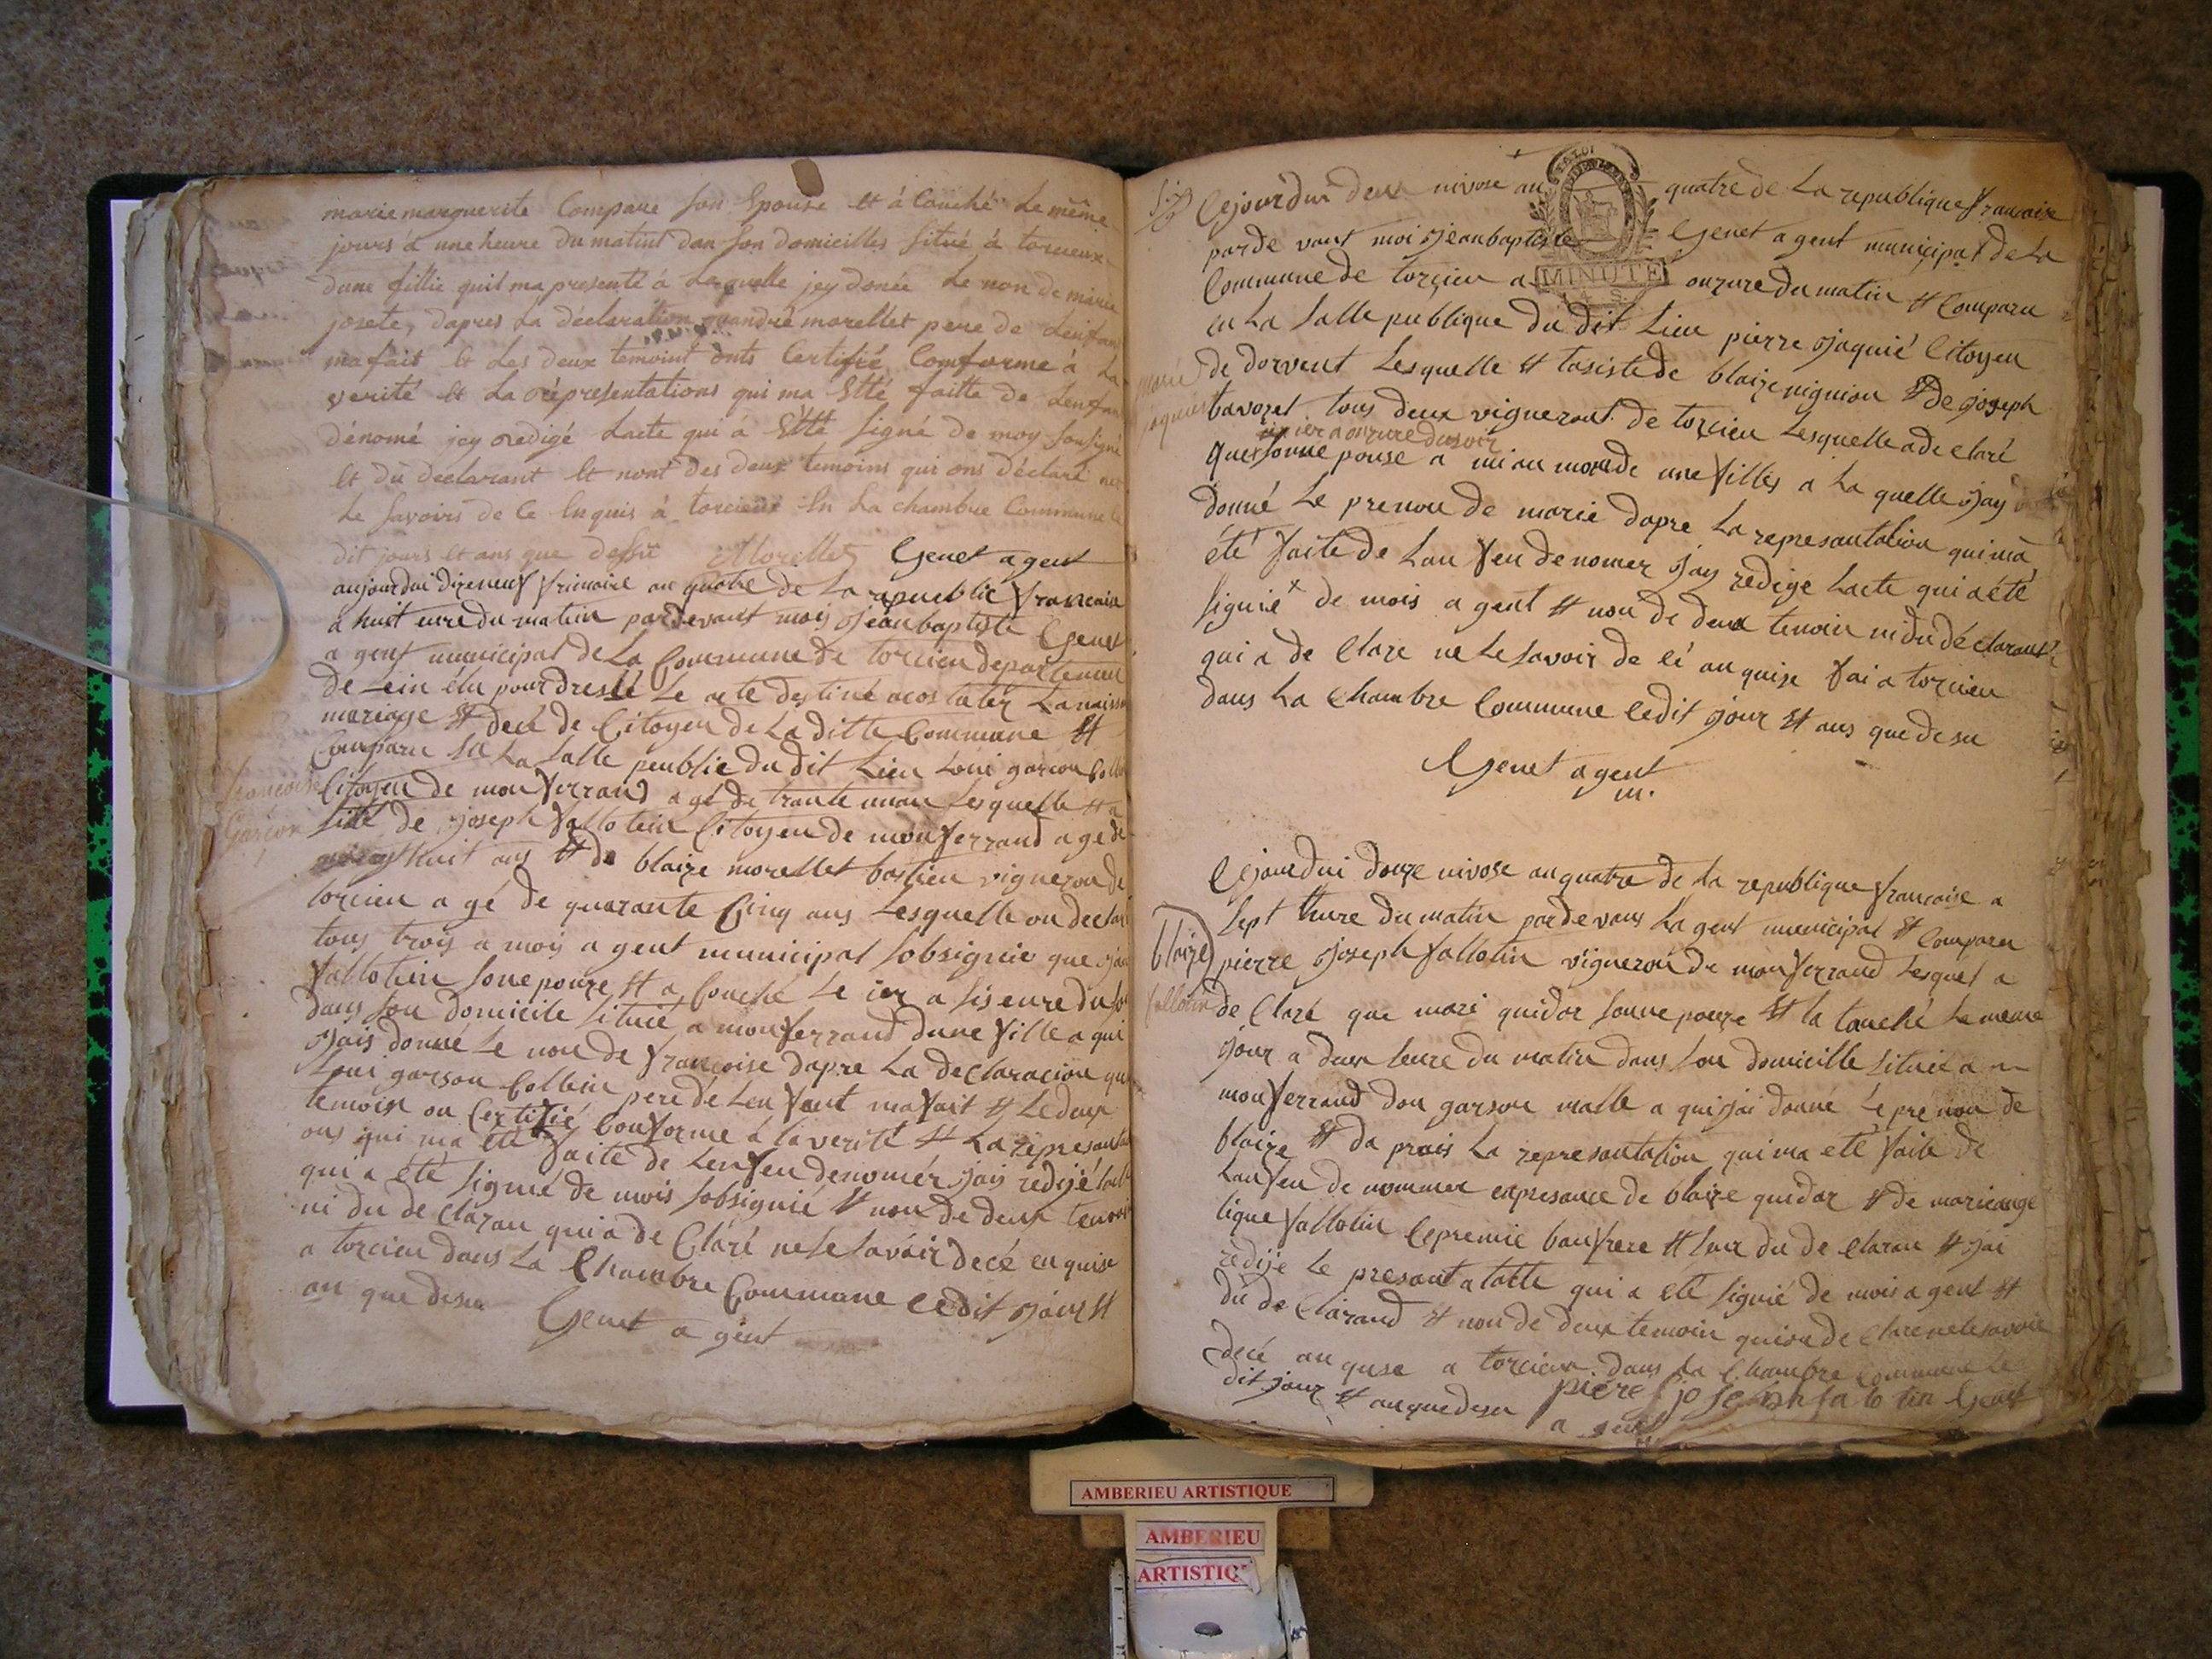 marie marguerite Compane son Epouse et à Couché Le même
jours à une heure du matint dan son domicilles Situé à torcieux
dune fillie quil ma presenté à Laquelle jey donée Le non de marie
josete, dapres La déclaration quandré morellet pere de Lenfan
ma fait et Les deux temoint onts Certifié Comforme à La
verité et La représentations qui ma Etté faitte de Lenfan
dénomé jey redigé Lacte qui à Etté signé de moy sousigné
et du declarant et nont des deux temoins qui ons déclaré ne
Le Savoirs de Ce Enquis à torcieux En La chambre Commune Le
dit jours et ans que dessu Morellet Genet agent
aujourdui dizeneuf frimaire an quatre de La republic francaise
a huit eure du matin pardevant mois Jean baptiste Genet
a gent municipal de La Commune de torcieu departemen
de Lein élu pour dressé Le acte destiné a costater La naissa
mariage et decé de Citoyen de La ditte Commune et
Comparu en La Salle peublic du dit Lieu Loui garson Collb
francoise
Garçon
Citoyen de monferrand a gé de trante un an Lesquelle et a
sisté de Joseph fallotein Citoyen de monferrand a gé de
huit ans et de blaize morellet bastien vigneron de
torcieu a gé de quarante Cinq ans Lesquelle on declaré
tous trois a mois a gent municipal sobsignié que
fallotein sonepouze et a Couché Le ier a sis eure du soi
dans son domicile situié a monferrand dune fille a qui
Jais donné Le non de francoise dapre La declaracion que
Loui garson Collbin peré de Lenfant mafait et Le deux
temoin on Certifié Conforme à la verité et La represanta
ons qui ma été faite de Lenfen denomér Jay redijé Lacte
qui a été signié de mois sobsignié et non de deux temoin
ni du de claran qui a de Claré ne Le savoir decé enquise
a torcieu dans La Chambre Commune Ledit Jour et
an que desu Genet a gent
Cejourdui deux nivose an quatre de La republique francaise
par de vant moi Jean baptiste Genet agent municipal de La
MINUTE
Commune de torcieu a onzure du matin et Comparu
en La Salle publique du dit Lieu pierre Jaquié Citoyen
marie
jaquié
de dorvent Lesquelle et tasiste de blaize nignion et de joseph
tavozet tous deux vigneront de torcieu Lesquelle a de claré
ier a onzure du soir
que sonne pouse a mi au monde une filles a La quelle Jay
donné Le prenon de marie dapre La represantation qui ma
été faite de Lanfen denomer Jay redigé Lacte qui a été
signié x de mois a gent et non de deux temoin ni du déclarant
qui a de Clare ne Le savoir de cé anquise fai a torcieu
dans La Chambre Commune Ledit Jour et ans que desu
Genet agent
m.
Cejourdui douze nivose an quatre de La republique francaise a
Sept Hure du matin par de vans La gent municipal et Comparu
blaize
fallotin
pierre Joseph fallotin vigneron de monferrand Lesquel a
de Claré que marí quidor sonne pouze et la couché Le meme
Jour a deux heure du matin dans son domicille situié a
monferrand don garson malle a qui Jai donné Le pre non de
blaize et da prais La represantation qui ma eté faite de
Lanfen de nommer enpresance de blaize quidor et de mariange
lique fallotin Le premié baufrere et sur du de claran et Jai
redije Le presant a tatte qui a eté signié de mois agent et
du de Clarand et non de deux temoin qui on de Clare ne Le savoir
decé an quse a torcieu dans La Chambre Commune Le
dit Jour et an que desu piere joseph falotin Genet
a gent
AMBERIEU ARTISTIQUE
AMBERIEU
ARTISTIQ